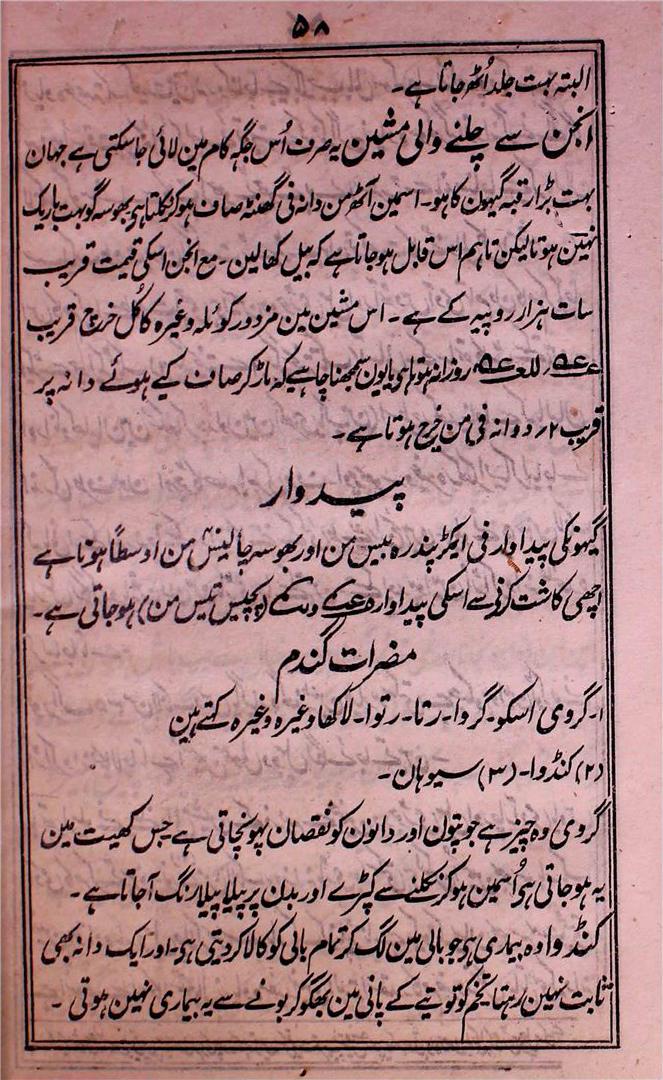 ۵۸
البتہ بہت جلد اُٹھ جاتا ہے۔
انجن سے چلنے والی مشین یہ صرف اُس جگہ کام مین لائی جاسکتی ہے جہان
بہت بڑا رقبہ گیہون کا ہو۔ اسمین آٹھ من دانہ فی گھنٹہ صاف ہو کر نکلتا ہی بھوسہ گو بہت باریک
نہین ہوتا لیکن تاہم اس قابل ہو جاتا ہے کہ بیل کھالین۔ مع انجن اسکی قیمت قریب
سات ہزار روپیہ کے ہے۔ اس مشین مین مزدور کوئلہ وغیرہ کا کُل خرچ قریب
روزانہ ہوتا ہی یا یون سمجھنا چاہیے کہ ماڑ کر صاف کیے ہوئے دانہ پر
قریب ۲؍ دوانہ فی من خرچ ہوتا ہے۔
پیدوار
گیہونکی پیداوار فی ایکڑ پندرہ بیس من اور بھوسہ چالیس من اوسطاً ہوتا ہے
اچھی کاشت کرنے سے اسکی پیداوار (پچیس تیس من) ہو جاتی ہے۔
مضرات گندم
۱۔ گروی اسکو۔ گروا۔ رتا۔ رتوا۔ لاکھا وغیرہ وغیرہ کہتے ہین
(۲) کنڈوا۔ (۳) سیوہان۔
گروی وہ چیز ہے جو پتون اور دانون کو نقصان پہونچاتی ہے جس کھیت مین
یہ ہو جاتی ہی اُسمین ہو کر نکلنے سے کپڑے اور بدن پر پیلا پیلا رنگ آجاتا ہے۔
کنڈوا وہ بیماری ہی جو بالی مین لگ کر تمام بالی کو کالا کردیتی ہی۔ اور ایک دانہ بھی
ثابت نہین رہتا تخم کو توتیے کے پانی مین بھگو کر بونے سے یہ بیماری نہین ہوتی۔